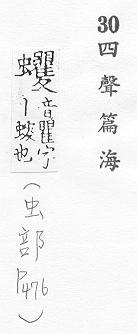 30 四聲篇海
蠼
音瞿字
丨也
(虫部 P476)